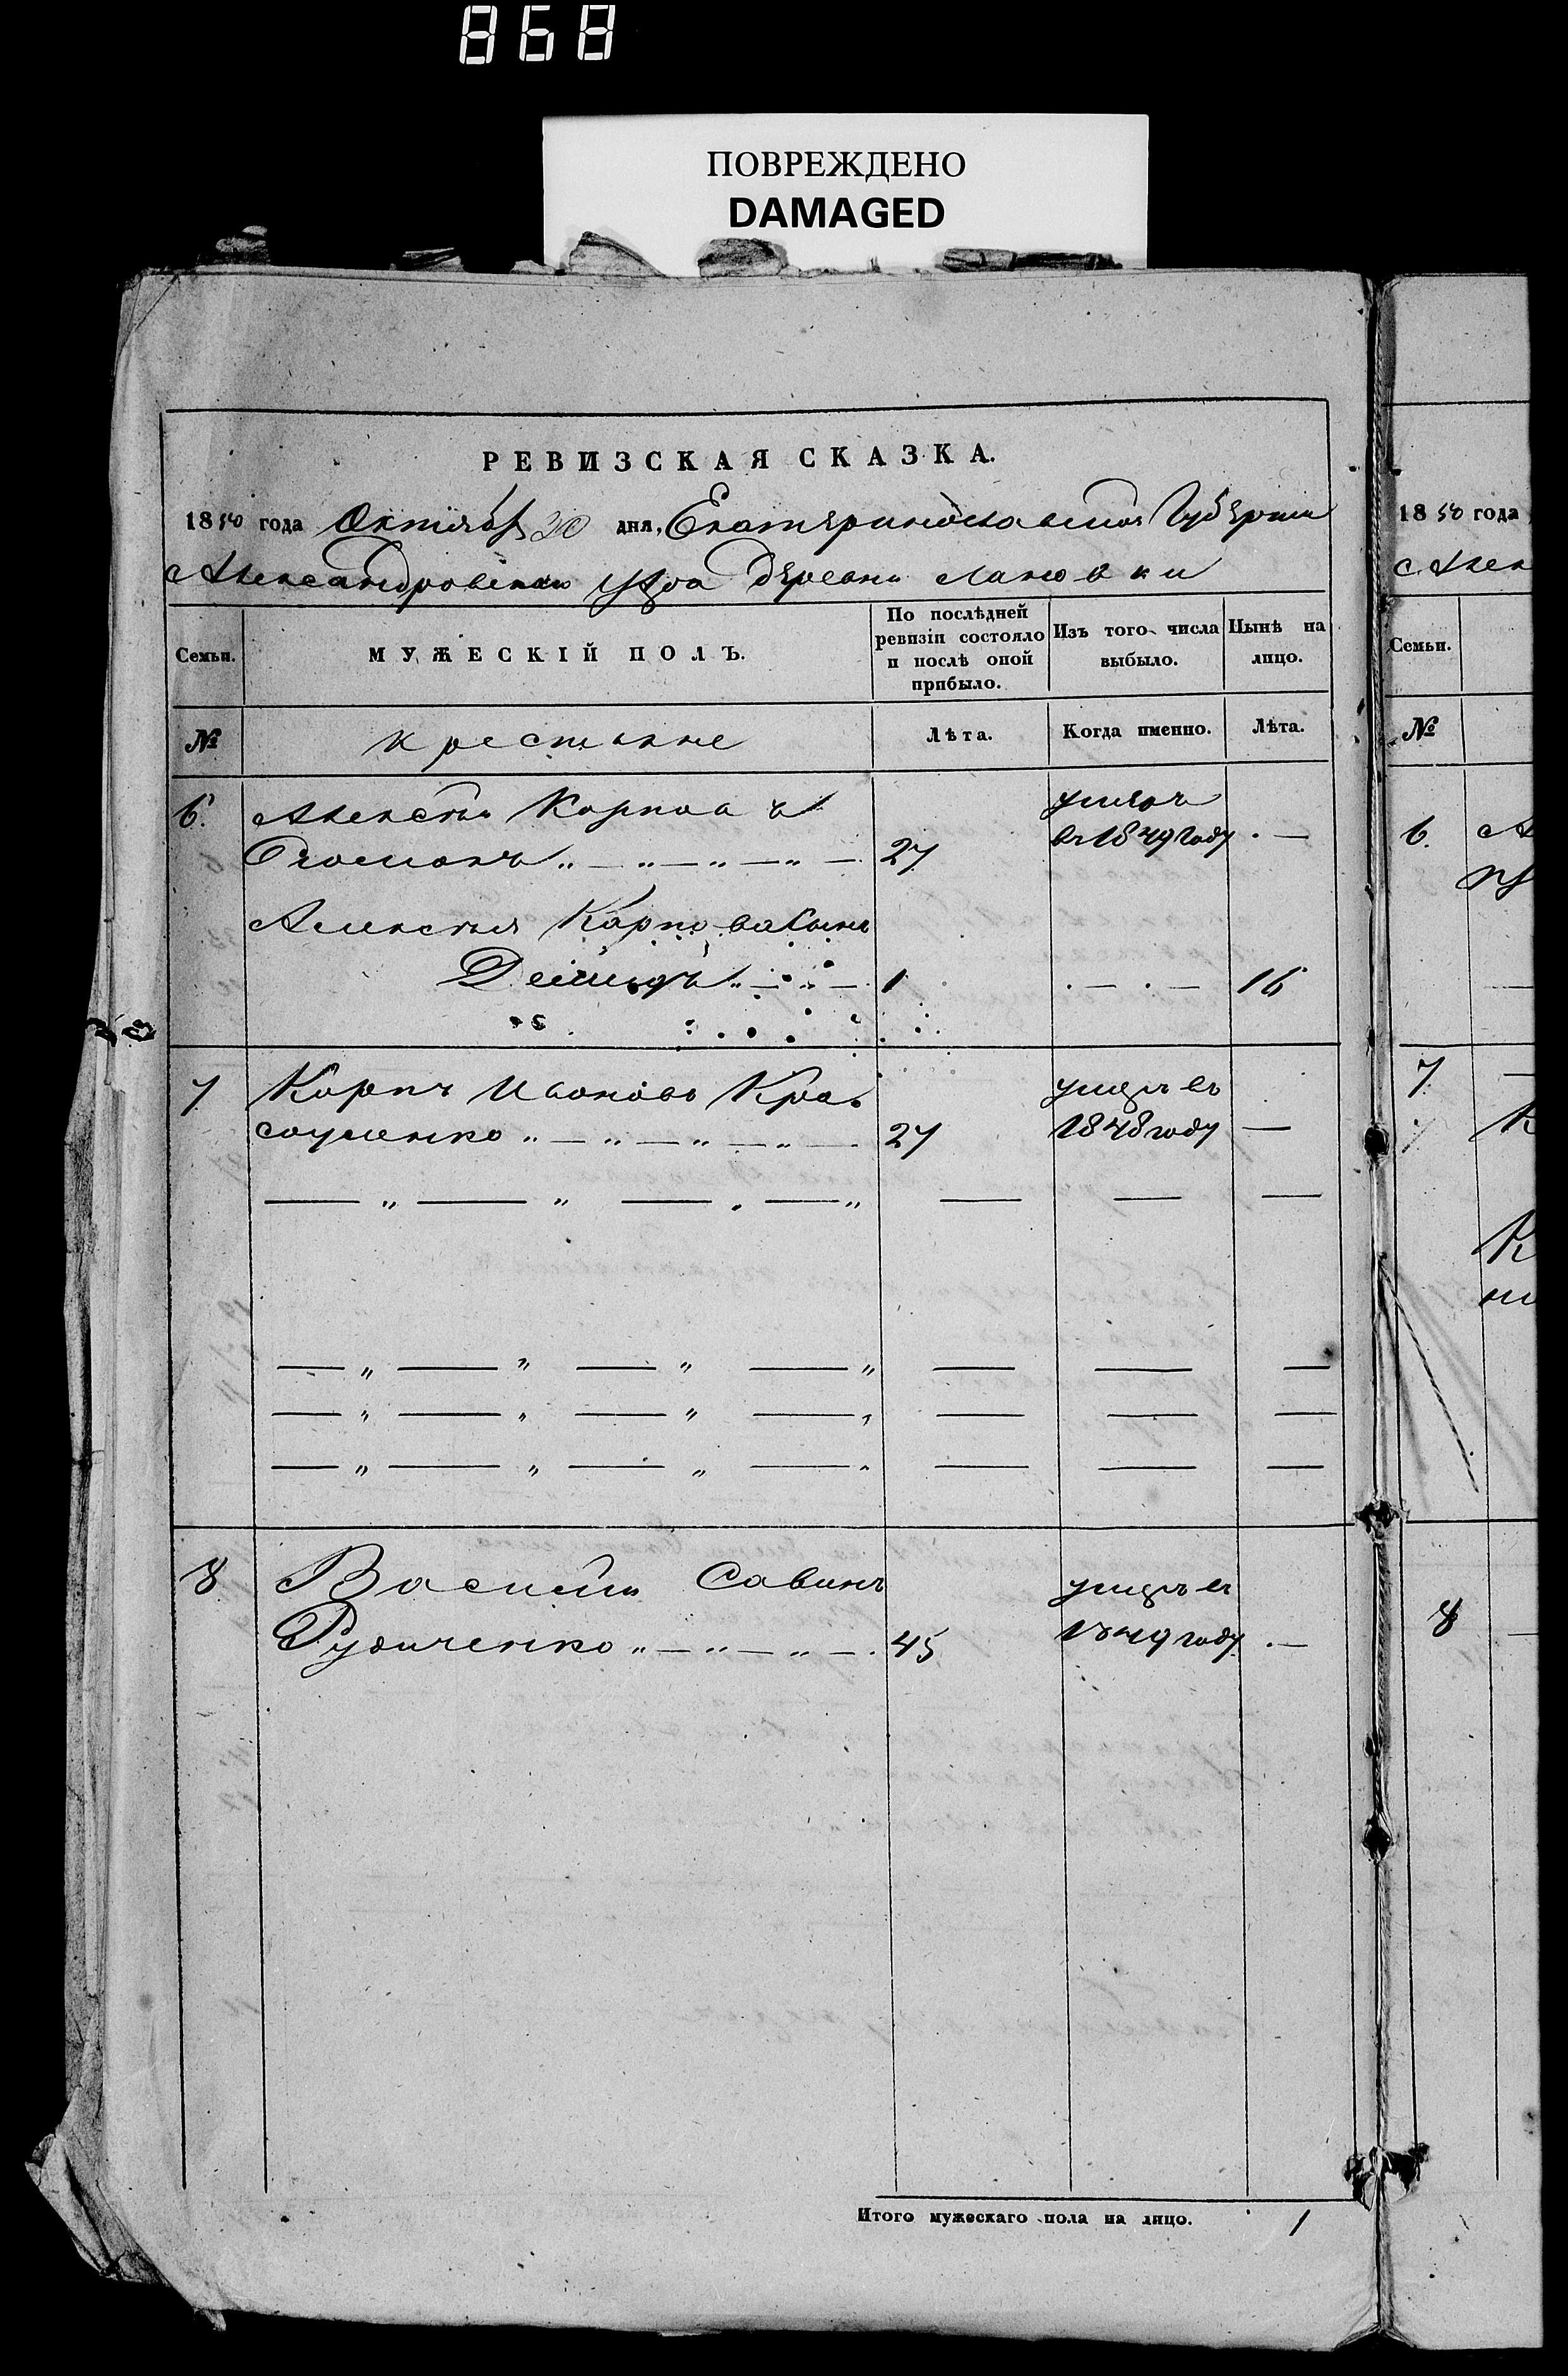 868
ПОВРЕЖДЕНО
DAMAGED
РЕВИЗСКАЯ СКАЗКА.
1850 года Октября 30 дня, Екатеринославской Губернии
Александровскаго уѣзда деревни Лановки
Семьи.
МУЖЕСКІЙ ПОЛЪ.
По послѣдней
ревизіи состояло
и послѣ оной
прибыло.
Изъ того числа
выбыло.
Нынѣ на
лицо.
№
крестьяне
Лѣта.
Когда именно.
Лѣта.
6.
Алексѣй Карповъ
умеръ
27
въ 1849 году
Алексѣя Карпова сынъ
1
16
7
Карпъ Ивановъ Кра
умеръ въ
27
1848 году
8
Василій Савинъ
умеръ въ
Рудиченко
45
1849 году
Итого мужескаго пола на лицо.
1
1850 года
Алек
Семьи.
№
6.
7
К
К
8